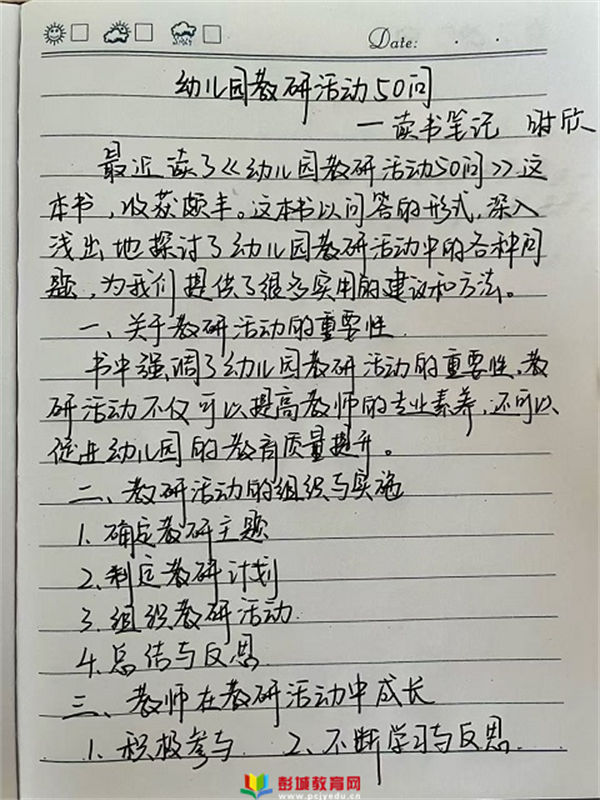 Date:
幼儿园教研活动50问
—读书笔记 时欣
最近读了《幼儿园教研活动50问》这
本书，收获颇丰。这本书以问答的形式，深入
浅出地探讨了幼儿园教研活动中的各种问
题，为我们提供了很多实用的建议和方法。
一、关于教研活动的重要性
书中强调了幼儿园教研活动的重要性。教
研活动不仅可以提高教师的专业素养，还可以
促进幼儿园的教育质量提升。
二、教研活动的组织与实施
1. 确定教研主题
2. 制定教研计划
3. 组织教研活动
4. 总结与反思
三、教师在教研活动中成长
1. 积极参与 2. 不断学习与反思
彭城教育网
www.pcjyedu.cn